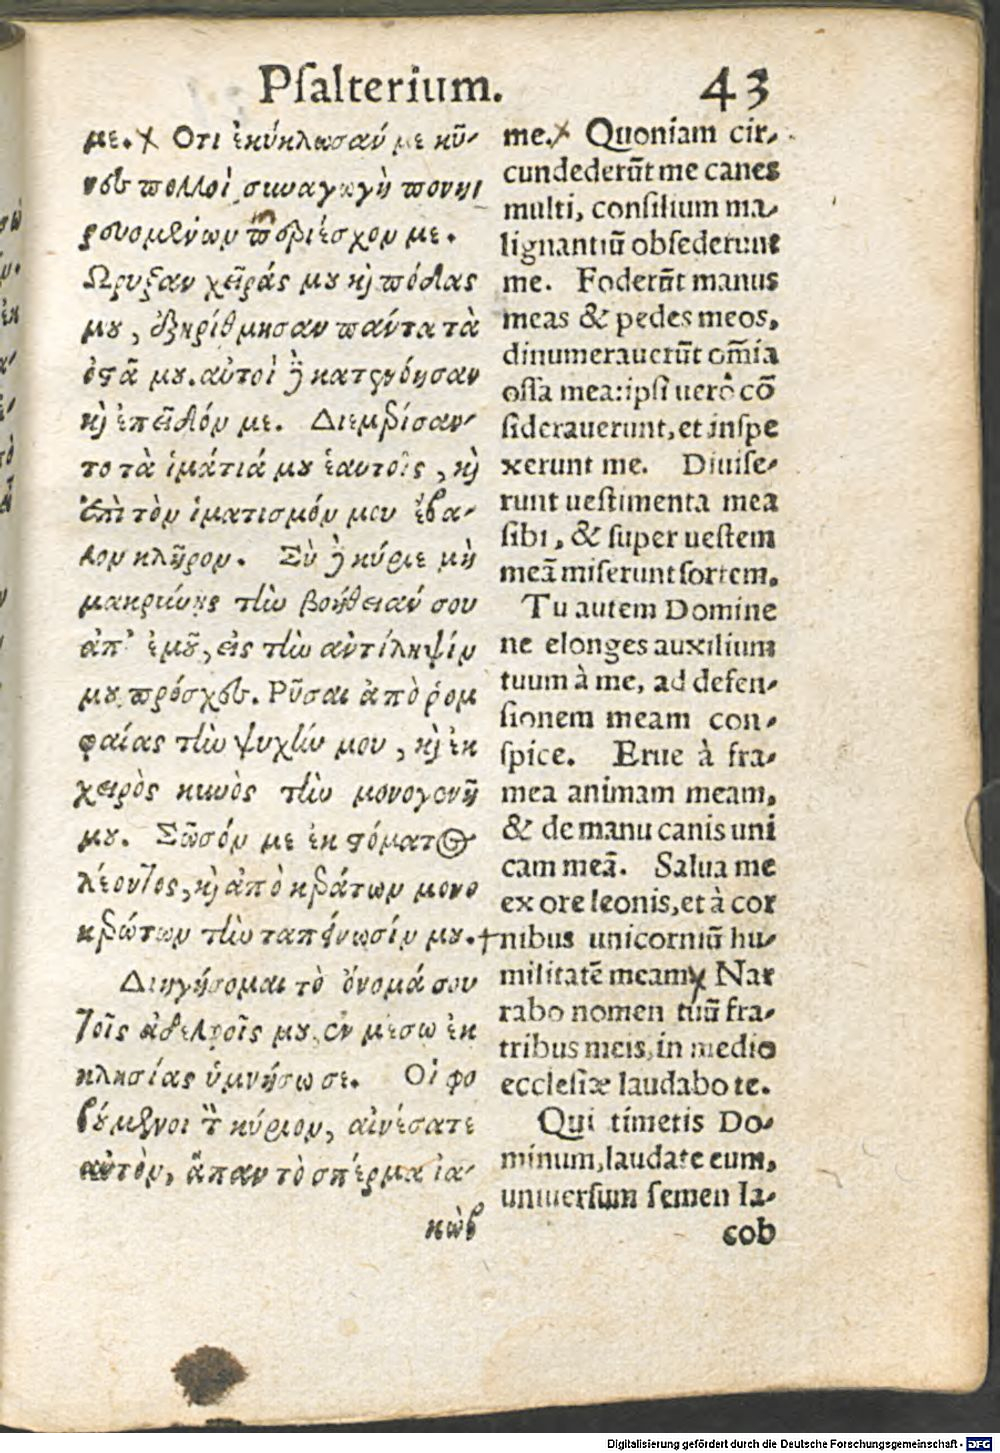 Pſalterium. 43
με. Οτι ἐκύκλωσαν με κύ-
νες πολλοὶ, συναγωγὴ πονη
ρευομένων περιέσχον με.
Ωρυξαν χεῖράς μου καὶ πόδας
μου, ἐξηρίθμησαν πάντα τὰ
ὀστᾶ μου. αὐτοὶ δὲ κατενόησαν
καὶ ἐπεῖδόν με. Διεμερίσαν-
το τὰ ἱμάτιά μου ἑαυτοῖς, καὶ
ἐπὶ τὸν ἱματισμόν μου ἔβα-
λον κλῆρον. Σὺ δὲ κύριε μὴ
μακρύνῃς τὴν βοήθειάν σου
ἀπ' ἐμοῦ, εἰς τὴν ἀντίληψίν
μου πρόσχες. Ρῦσαι ἀπὸ ῥομ
φαίας τὴν ψυχήν μου, καὶ ἐκ
χειρὸς κυνὸς τὴν μονογενῆ
μου. Σῶσόν με ἐκ στόματος
λέοντος, καὶ ἀπὸ κεράτων μονο
κερώτων τὴν ταπείνωσίν μου.
Διηγήσομαι τὸ ὄνομά σου
τοῖς ἀδελφοῖς μου, ἐν μέσω ἐκ
κλησίας ὑμνήσω σε. Οἱ φο
βούμενοι τὸν κύριον, αἰνέσατε
αὐτὸν, ἅπαν τὸ σπέρμα ἰα-
κὼβ
me. Quoniam cir-
cundederũt me canes
multi, conſilium ma-
lignantiũ obſederunt
me. Foderũt manus
meas & pedes meos,
dinumerauerũt om̃ia
oſſa mea: ipſi uero cõ
ſiderauerunt, et inſpe
xerunt me. Diuiſe-
runt ueſtimenta mea
ſibi, & ſuper ueſtem
meã miſerunt ſortem.
Tu autem Domine
ne elonges auxilium
tuum à me, ad defen-
ſionem meam con-
ſpice. Erue à fra-
mea animam meam,
& de manu canis uni
cam meã. Salua me
ex ore leonis, et à cor
nibus unicorniũ hu-
militatẽ meam. Nar
rabo nomen tuũ fra-
tribus meis, in medio
eccleſiæ laudabo te.
Qui timetis Do-
minum, laudate eum,
uniuerſum ſemen Ia-
cob
Digitalisierung gefördert durch die Deutsche Forschungsgemeinschaft - DFG